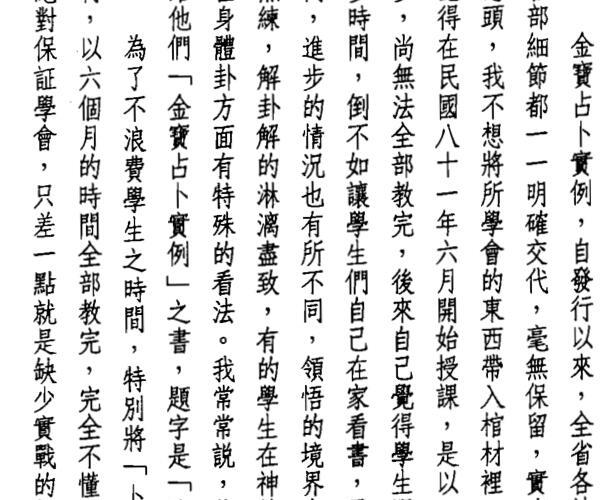 金寶占卜實例，自發行以來，全省各
部細節都一一明確交代，毫無保留，實
頭，我不想將所學會的東西帶入棺材裡
得在民國八十一年六月開始授課，是以
，尚無法全部教完，後來自己覺得學生
時間，倒不如讓學生們自己在家看書，
，進步的情況也有所不同，領悟的境界
練，解卦解的淋漓盡致，有的學生在神
身體卦方面有特殊的看法。我常常說，
他們「金寶占卜實例」之書，題字是「
為了不浪費學生之時間，特別將「卜
，以六個月的時間全部教完，完全不懂
對保証學會，只差一點就是缺少實戰的